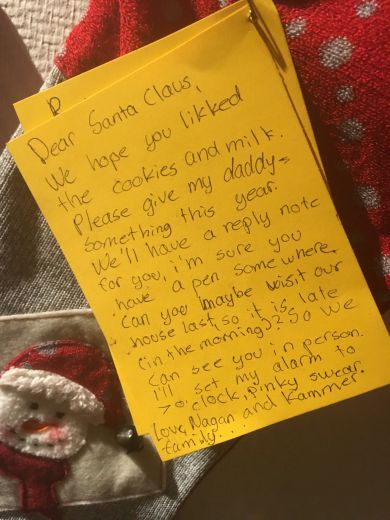 D
Dear Santa Claus,
We hope you likked
the cookies and milk.
Please give my daddy
something this year.
We'll have a reply note
for you, i'm sure you
have a pen somewhere.
Can you maybe visit our
house last, so it is late
(in the morning)? So we
can see you in person.
I'll set my alarm to
7 o'clock, pinky swear.
Love, Nagan and Kammer
family...